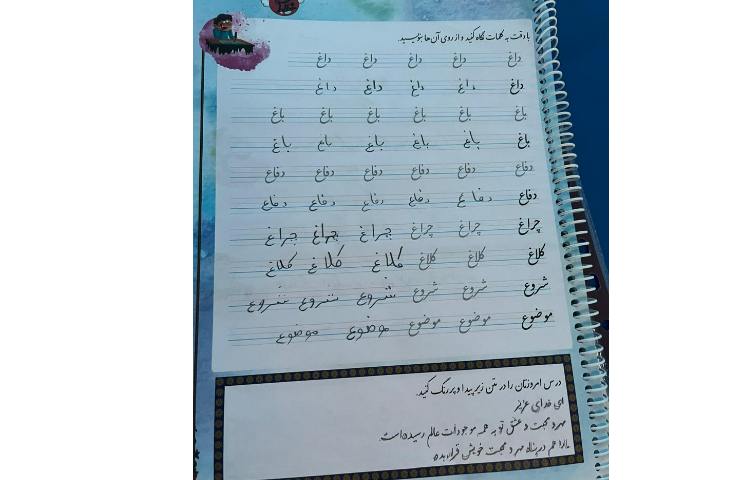 با دقت به کلمات نگاه کنید و از روی آن ها بنویسید
داغ داغ داغ داغ داغ
داغ داغ داغ داغ داغ
باغ باغ باغ باغ باغ باغ
باغ باغ باغ باغ باغ باغ
دفاع دفاع دفاع دفاع دفاع دفاع
دفاع دفاع دفاع دفاع دفاع دفاع
چراغ چراغ چراغ چراغ چراغ چراغ
کلاغ کلاغ کلاغ کلاغ کلاغ کلاغ
شروع شروع شروع شروع شروع شروع
موضوع موضوع موضوع موضوع موضوع
درس امروزتان را در متن زیر پیدا و پررنگ کنید.
ای خدای عزیز
مهر و محبت و عشق تو به همه موجودات عالم رسیده است.
ما را هم در پناه مهر و محبت خویش قرار بده